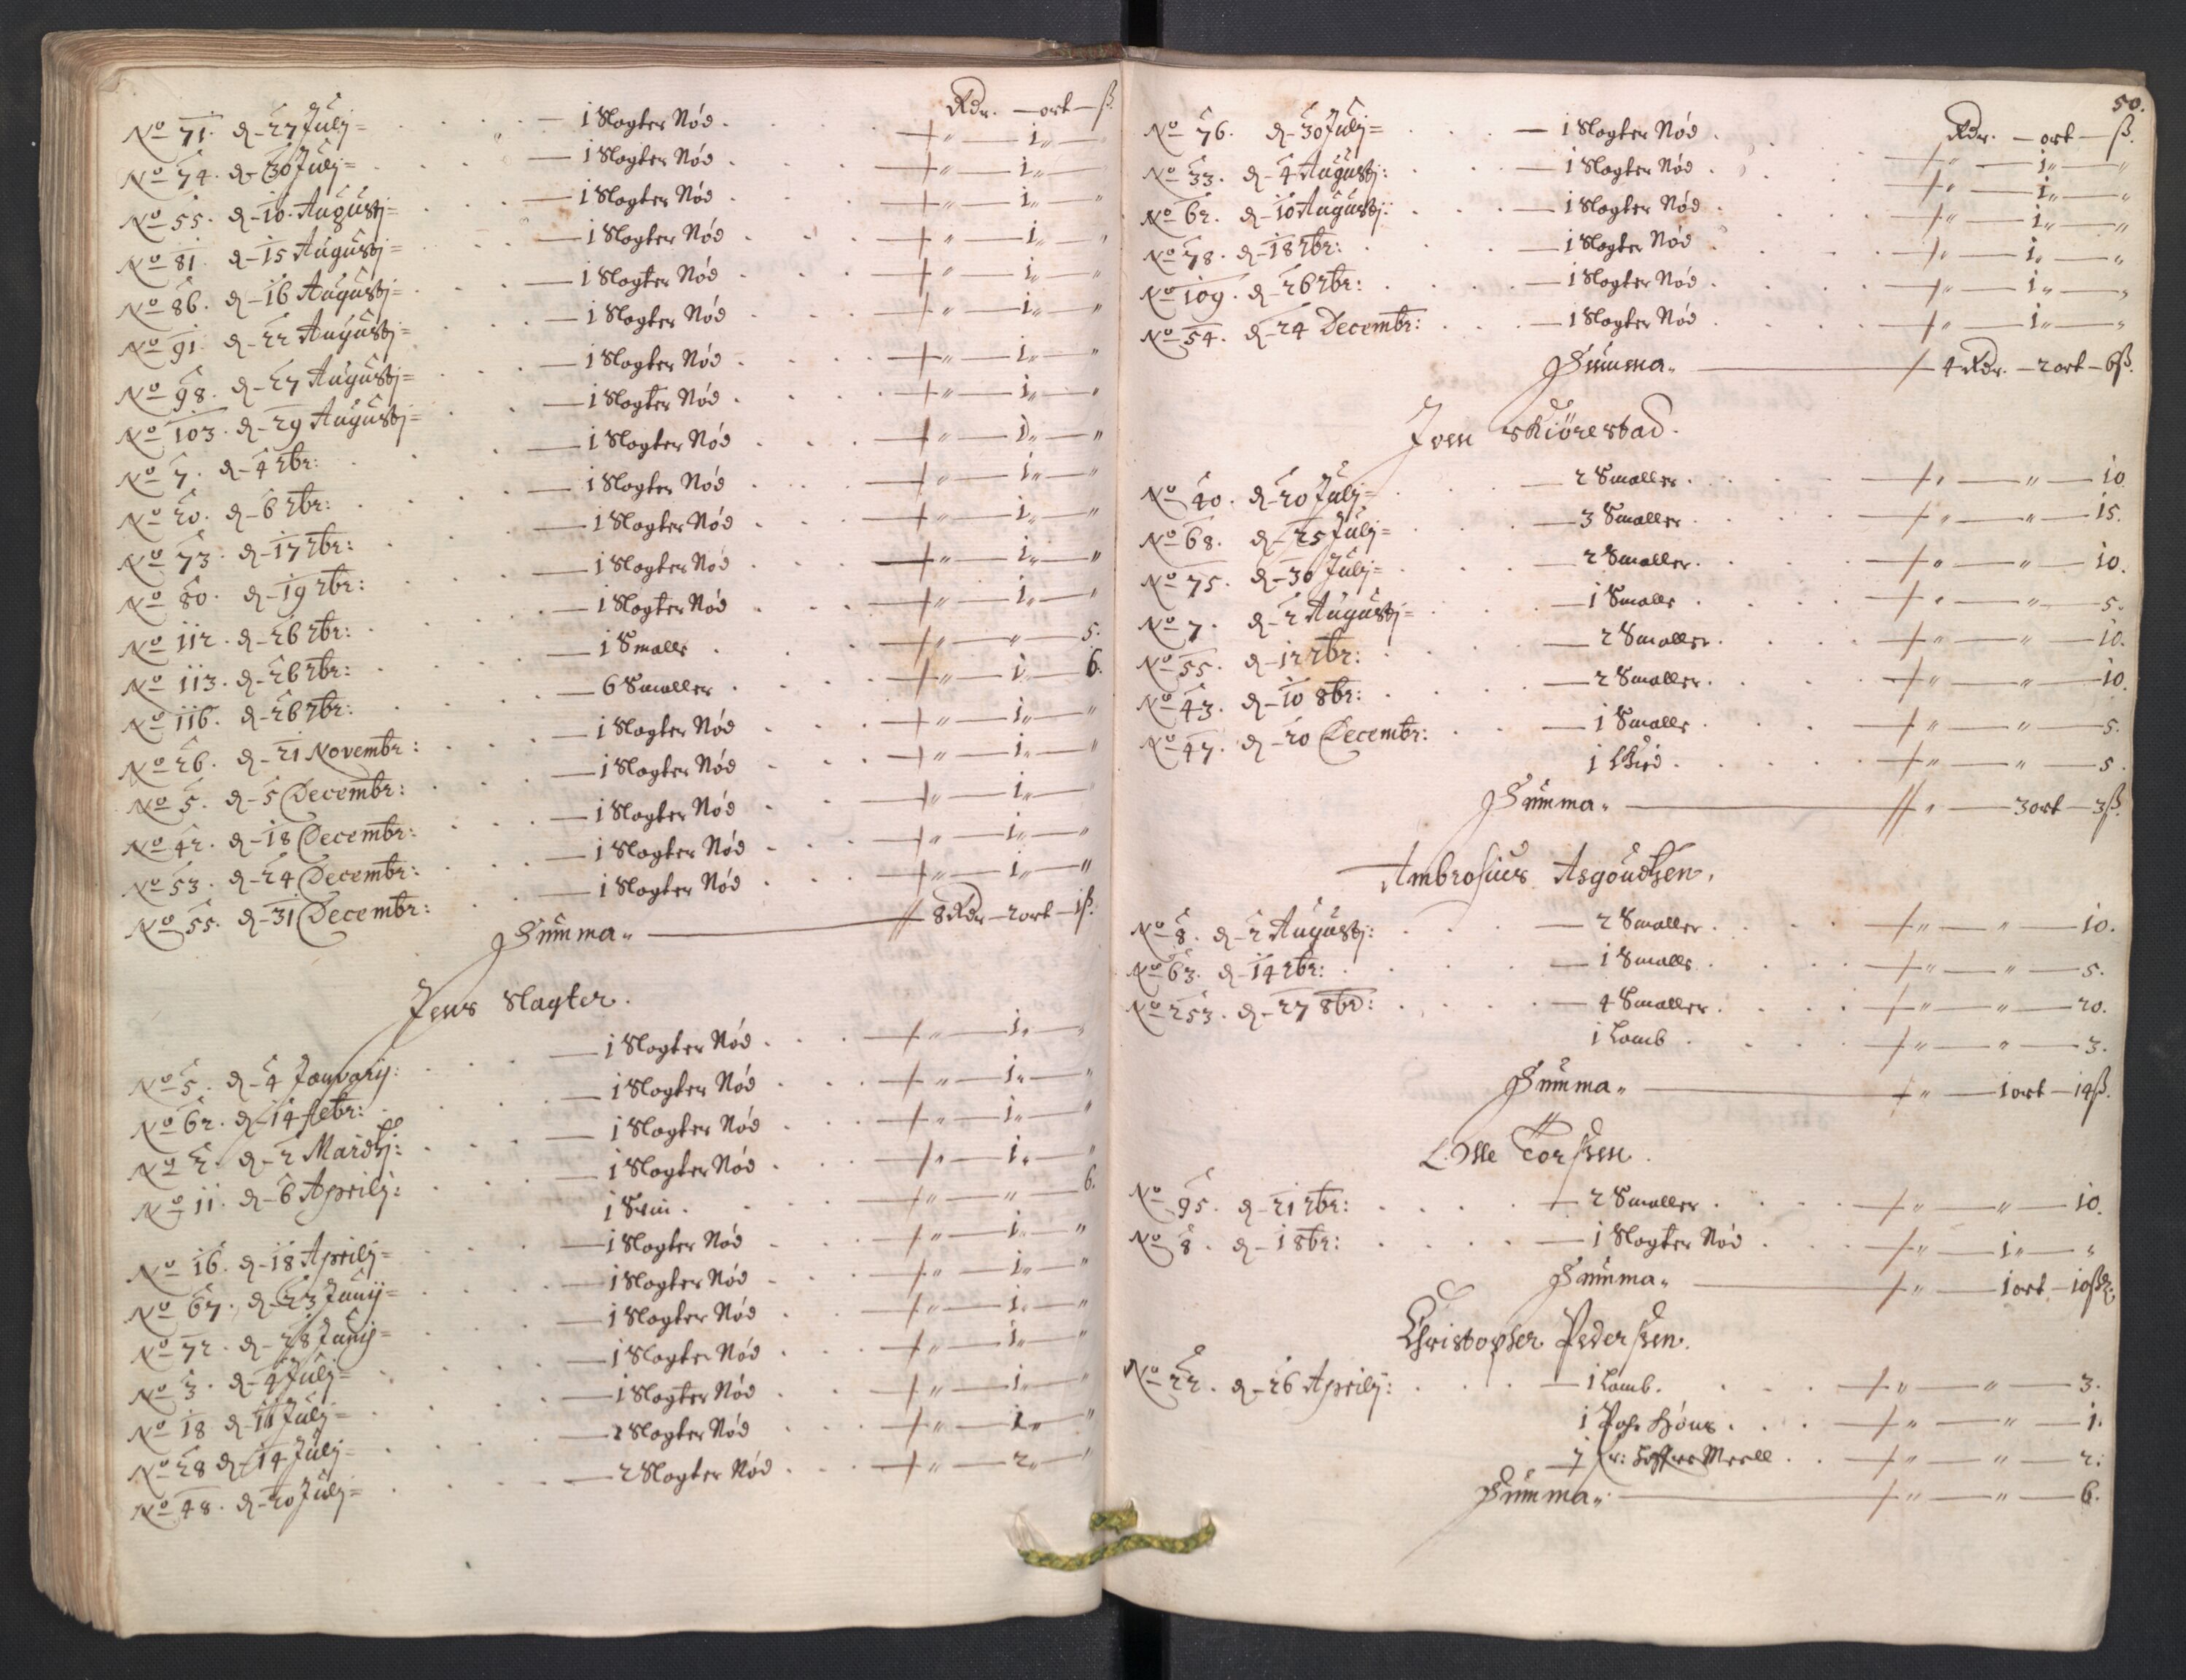 Rdr. — ort — ß.
No 71. d- 27 Julij= . . . — 1 Slagter Nód . . . " — 1 " — "
No 74. d- 30 Julij= . . . — 1 Slagter Nód . . . " — 1 " — "
No 55. d- 10. Augustj= . . . — 1 Slagter Nód . . . " — 1 " — "
No 81. d- 15 Augustj= . . . — 1 Slagter Nód . . . " — 1 " — "
No 86. d- 16 Augustj= . . . — 1 Slagter Nód . . . " — 1 " — "
No 91. d- 22 Augustj= . . . — 1 Slagter Nód . . . " — 1 " — "
No 98. d- 27 Augustj= . . . — 1 Slagter Nód . . . " — 1 " — "
No 103. d- 29 Augustj= . . . — 1 Slagter Nód . . . " — 1 " — "
No 7. d- 4 7br: . . . — 1 Slagter Nód . . . " — 1 " — "
No 20. d- 6 7br: . . . — 1 Slagter Nód . . . " — 1 " — "
No 73. d- 17 7br: . . . — 1 Slagter Nód . . . " — 1 " — "
No 80. d- 19 7br: . . . — 1 Slagter Nód . . . " — 1 " — "
No 112. d- 26 7br: . . . — 1 Slagter Nód . . . " — 1 " — "
No 113. d- 26 7br: . . . — 1 Smalle . . . " — " — 5.
No 116. d- 26 7br: . . . — 6 Smaller . . . " — 1 — 6.
No 26. d- 21 Novembr: . . . — 1 Slagter Nód . . . " — 1 " — "
No 5. d- 5 Decembr: . . . — 1 Slagter Nód . . . " — 1 " — "
No 42. d- 18 Decembr: . . . — 1 Slagter Nód . . . " — 1 " — "
No 53. d- 24 Decembr: . . . — 1 Slagter Nód . . . " — 1 " — "
No 55. d- 31 Decembr: . . . — 1 Slagter Nód . . . " — 1 " — "
Summa " — 8 Rdr — 2 ort — 1 ß.
Jens Slagter.
No 5. d- 4 Januarij: . . . — 1 Slagter Nód . . . " — 1 " — "
No 62. d- 14 febr: . . . — 1 Slagter Nód . . . " — 1 " — "
No 2. d- 2 Martij: . . . — 1 Slagter Nód . . . " — 1 " — "
No 11. d- 6 Aprilj: . . . — 1 Slagter Nód . . . " — 1 " — "
1 Suin . . . " — " — 6.
No 16. d- 18 Aprilj= . . . — 1 Slagter Nód . . . " — 1 " — "
No 67. d- 23 Junij= . . . — 1 Slagter Nód . . . " — 1 " — "
No 72. d- 28 Junij= . . . — 1 Slagter Nód . . . " — 1 " — "
No 3. d- 4 Julij= . . . — 1 Slagter Nód . . . " — 1 " — "
No 18 d- 11 Julij= . . . — 1 Slagter Nód . . . " — 1 " — "
No 28 d- 14 Julij= . . . — 1 Slagter Nód . . . " — 1 " — "
No 48. d- 20 Julij= . . . — 2 Slagter Nód . . . " — 2 " — "
50.
Rdr. — ort — ß.
No 76. d- 30 Julij= . . . — 1 Slagter Nód . . . " — 1 " — "
No 33. d- 4 Augustj: . . . — 1 Slagter Nód . . . " — 1 " — "
No 62. d- 10 Augustj: . . . — 1 Slagter Nód . . . " — 1 " — "
No 78. d- 18 7br: . . . — 1 Slagter Nód . . . " — 1 " — "
No 109. d- 26 7br: . . . — 1 Slagter Nód . . . " — 1 " — "
No 54. d- 24 Decembr: . . . — 1 Slagter Nód . . . " — 1 " — "
Summa " — 4 Rdr. — 2 ort — 6 ß.
Joen Skiörestad.
No 40. d- 20 Julij= . . . — 2 Smaller . . . " — " — 10
No 68. d- 25 Julij= . . . — 3 Smaller . . . " — " — 15.
No 75. d- 30 Julij= . . . — 2 Smaller . . . " — " — 10.
No 7. d- 2 Augustj= . . . — 1 Smalle . . . " — " — 5.
No 55. d- 12 7br: . . . — 2 Smaller . . . " — " — 10.
No 43. d- 10 8br: . . . — 2 Smaller . . . " — " — 10.
No 47. d- 20 Decembr: . . . — 1 Smalle . . . " — " — 5.
1 Kied . . . " — " — 5.
Summa " — " — 3 ort — 3 ß.
Ambrosius Asgoudtsen.
No 8. d- 2 Augustj: . . . — 2 Smaller . . . " — " — 10.
No 63. d- 14 7br: . . . — 1 Smalle . . . " — " — 5.
No 253. d- 27 8br: . . . — 4 Smaller . . . " — " — 20.
1 Lamb . . . " — " — 3.
Summa " — " — 1 ort — 14 ß.
L. Olle Torssen.
No 95. d- 21 7br: . . . — 2 Smaller . . . " — " — 10.
No 8. d- 1 8br: . . . — 1 Slagter Nód . . . " — 1 " — "
Summa " — " — 1 ort — 10 ß
Christopher Pederssen.
No 22. d- 26 Aprilj: . . . — 1 Lamb . . . " — " — 3.
1 Par Höns . . . " — " — 1.
Meell . . . " — " — 2:
Summa " — " — " — 6.